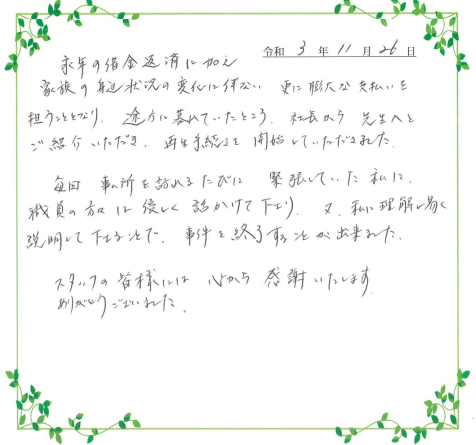 令和 3 年 11 月 26 日
永年の借金返済に加え
家族の身辺状況の変化に伴ない 更に膨大な支払いを
担うこととなり、途方に暮れていたところ、社長から 先生へと
ご紹介いただき、再生手続きを開始していただきました。
毎回 事ム所を訪れるたびに 緊張していた私に、
職員の方々は優しく話かけて下さり、又、私に理解し易く
説明して下さることで、事件を終了することが出来ました。
スタッフの皆様には 心から感謝いたします
ありがとうございました。